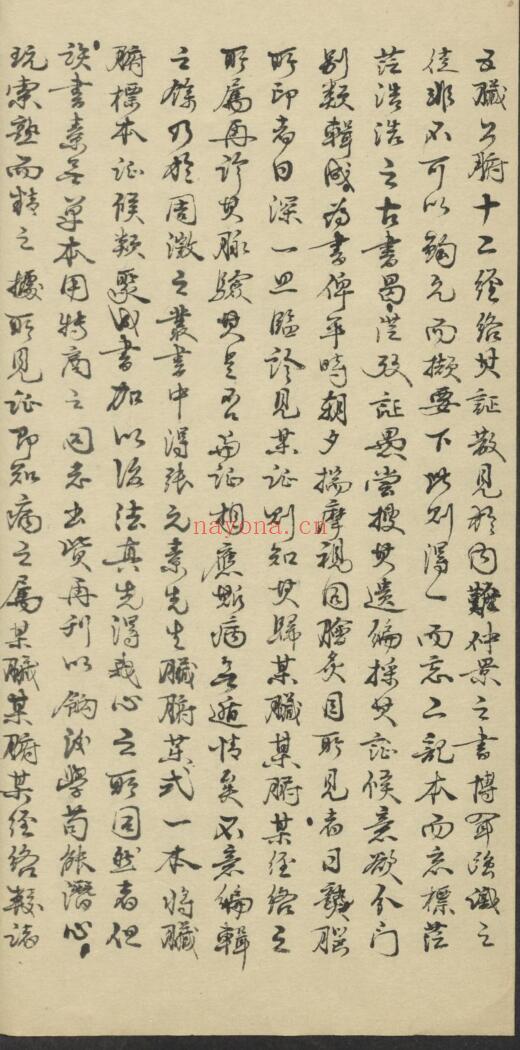 五臟六腑十二經絡其証散見於內難仲景之書博聞強識之
徒非不可以鉤元而撮要下此則得一而忘二記本而忘標茫
茫浩浩之古書曷從攷証愚嘗搜其遺編採其証候意欲分門
別類輯成為書俾平時朝夕揣摩視同膾炙目所見者日熟腦
所印者日深一旦臨診見某証則知其歸某臟某腑某經絡之
所屬再診其脉驗其是否與証相應斯病無遁情矣不意編輯
之餘乃於周澂之叢書中得張元素先生臟腑藥式一本將臟
腑標本证候類聚成書加以治法真先得我心之所同然者但
該書素無單本用特商之同志出貲再刊以餉後學苟能潛心
玩索熟而精之據所見证即知病之屬某臟某腑某经络較諸
nayona.cn